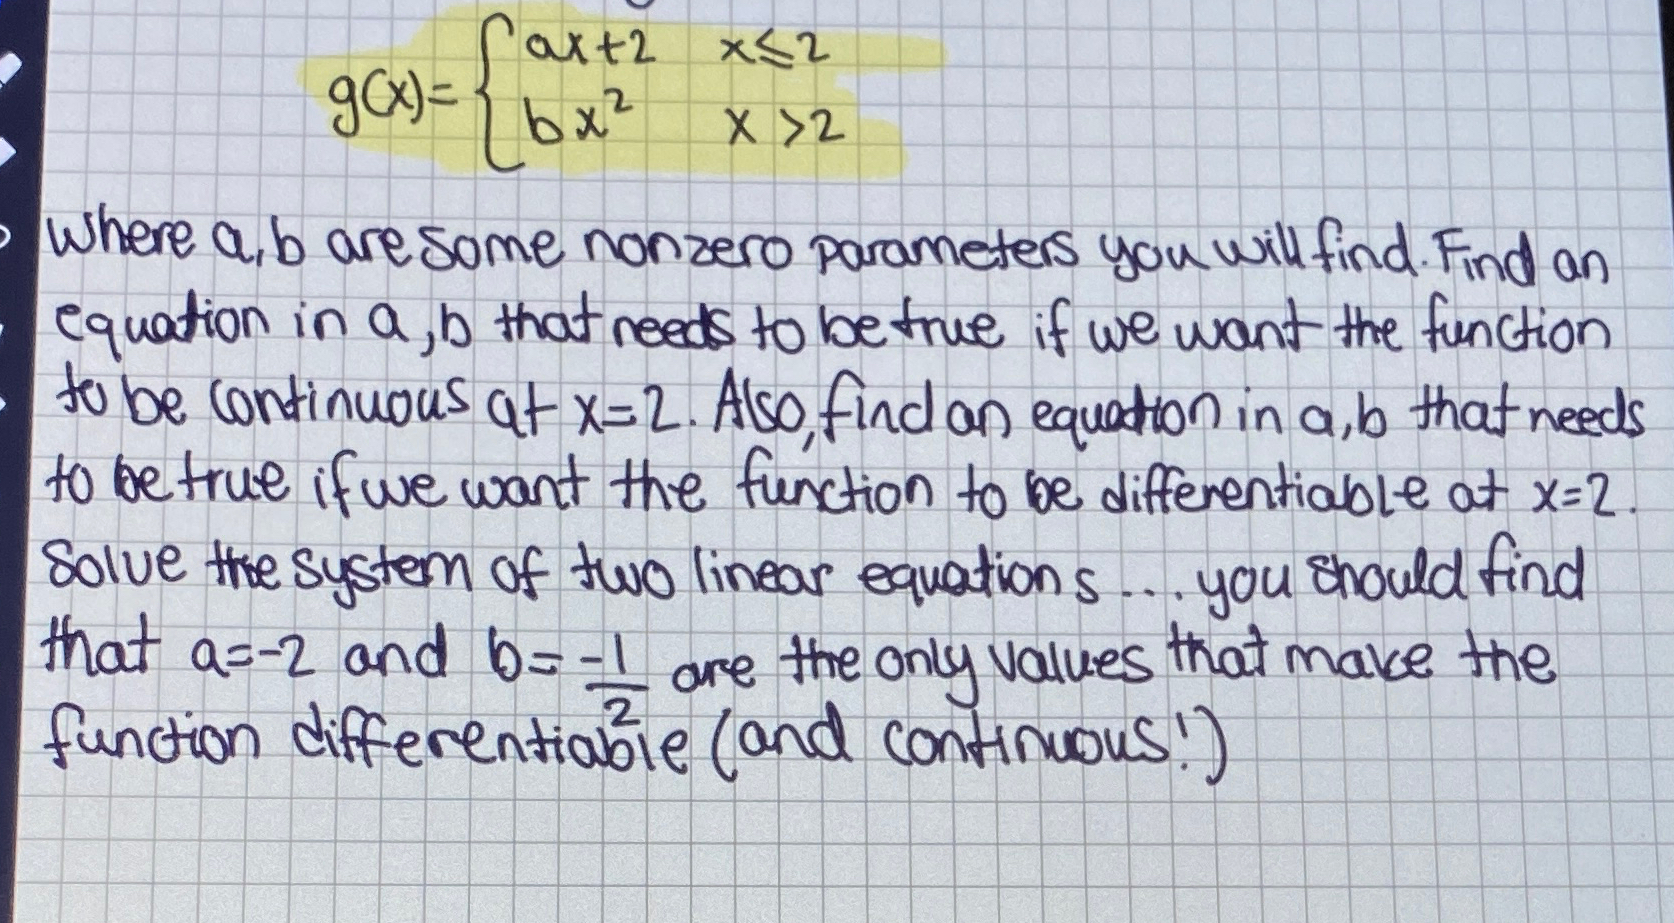 g(x)= { ax+2 x≤2
bx² x >2
where a,b are some nonzero parameters you will find. Find an
equation in a,b that needs to be true if we want the function
to be continuous at x=2. Also, find an equation in a,b that needs
to be true if we want the function to be differentiable at x=2.
Solve the system of two linear equations... you should find
that a=-2 and b= -1/2 are the only values that make the
function differentiable (and continuous!)